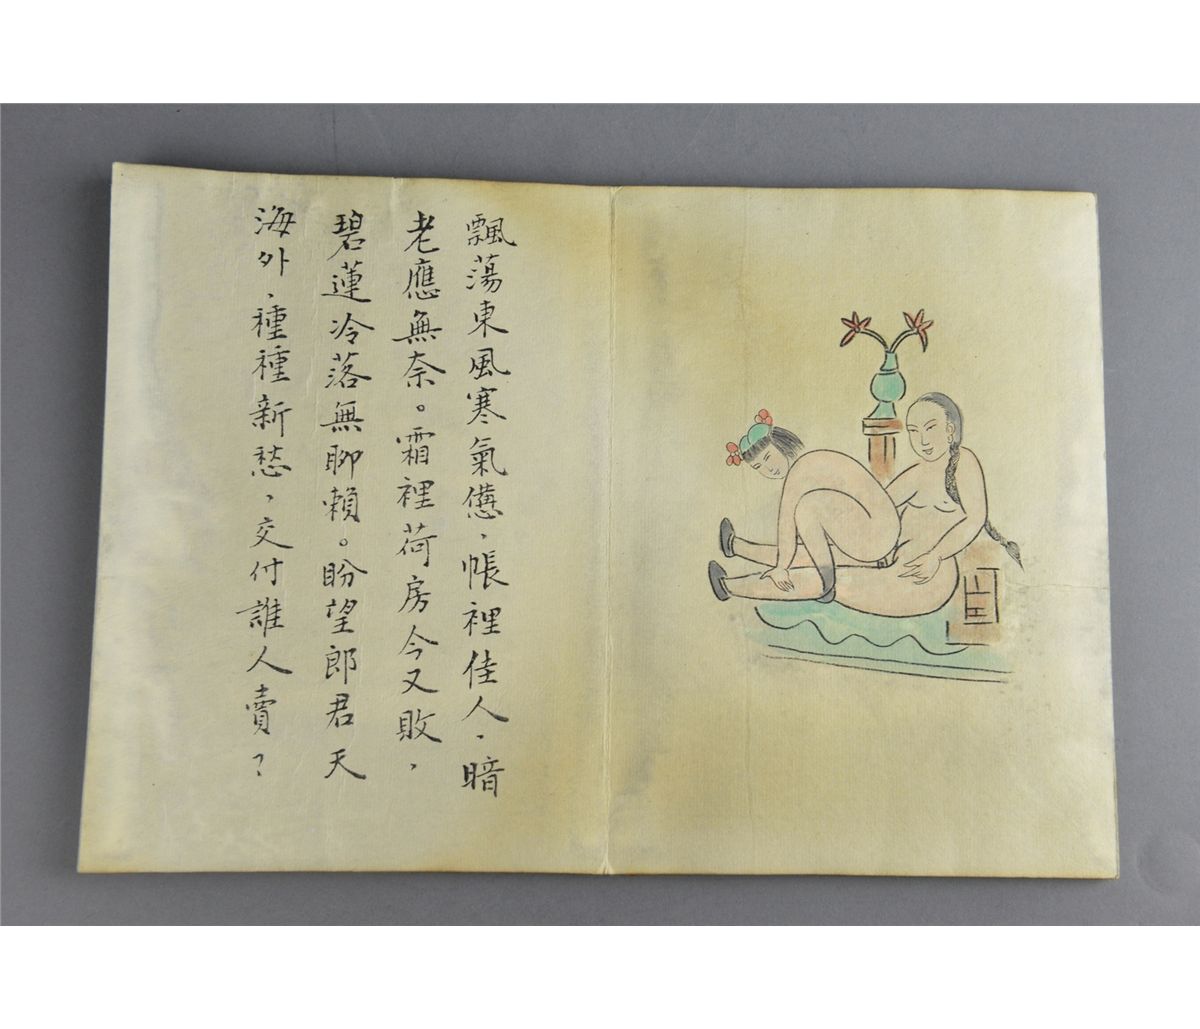 飄蕩東風寒氣憊，帳裡佳人，暗
老應無奈。霜裡荷房今又敗，
碧蓮冷落無聊賴。盼望郎君天
海外，種種新愁，交付誰人賣？